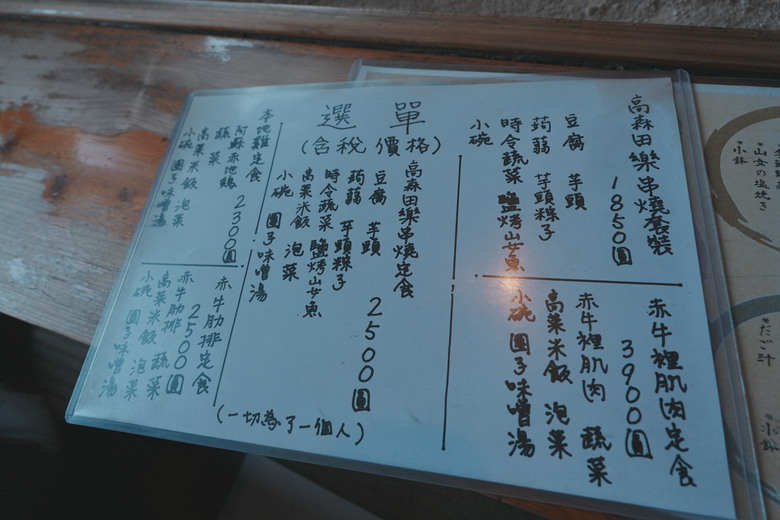 選單
(含稅價格)
高森田樂串燒套裝
1850圓
豆腐 芋頭
蒟蒻 芋頭粽子
時令蔬菜 鹽烤山女魚
小碗
赤牛裡肌肉定食
3900圓
赤牛裡肌肉 蔬菜
高菜米飯 泡菜
小碗 團子味噌湯
高森田樂串燒定食
2500圓
豆腐 芋頭
蒟蒻 芋頭粽子
時令蔬菜 鹽烤山女魚
高菜米飯 泡菜
小碗 團子味噌湯
(一切為了一個人)
本地雞定食
2300圓
阿蘇赤地鶏
蔬菜
高菜米飯 泡菜
小碗 團子味噌湯
赤牛肋排定食
2500圓
赤牛肋排 蔬菜
高菜米飯 泡菜
小碗 團子味噌湯
山女の塩焼き
小鉢
だご汁
小鉢